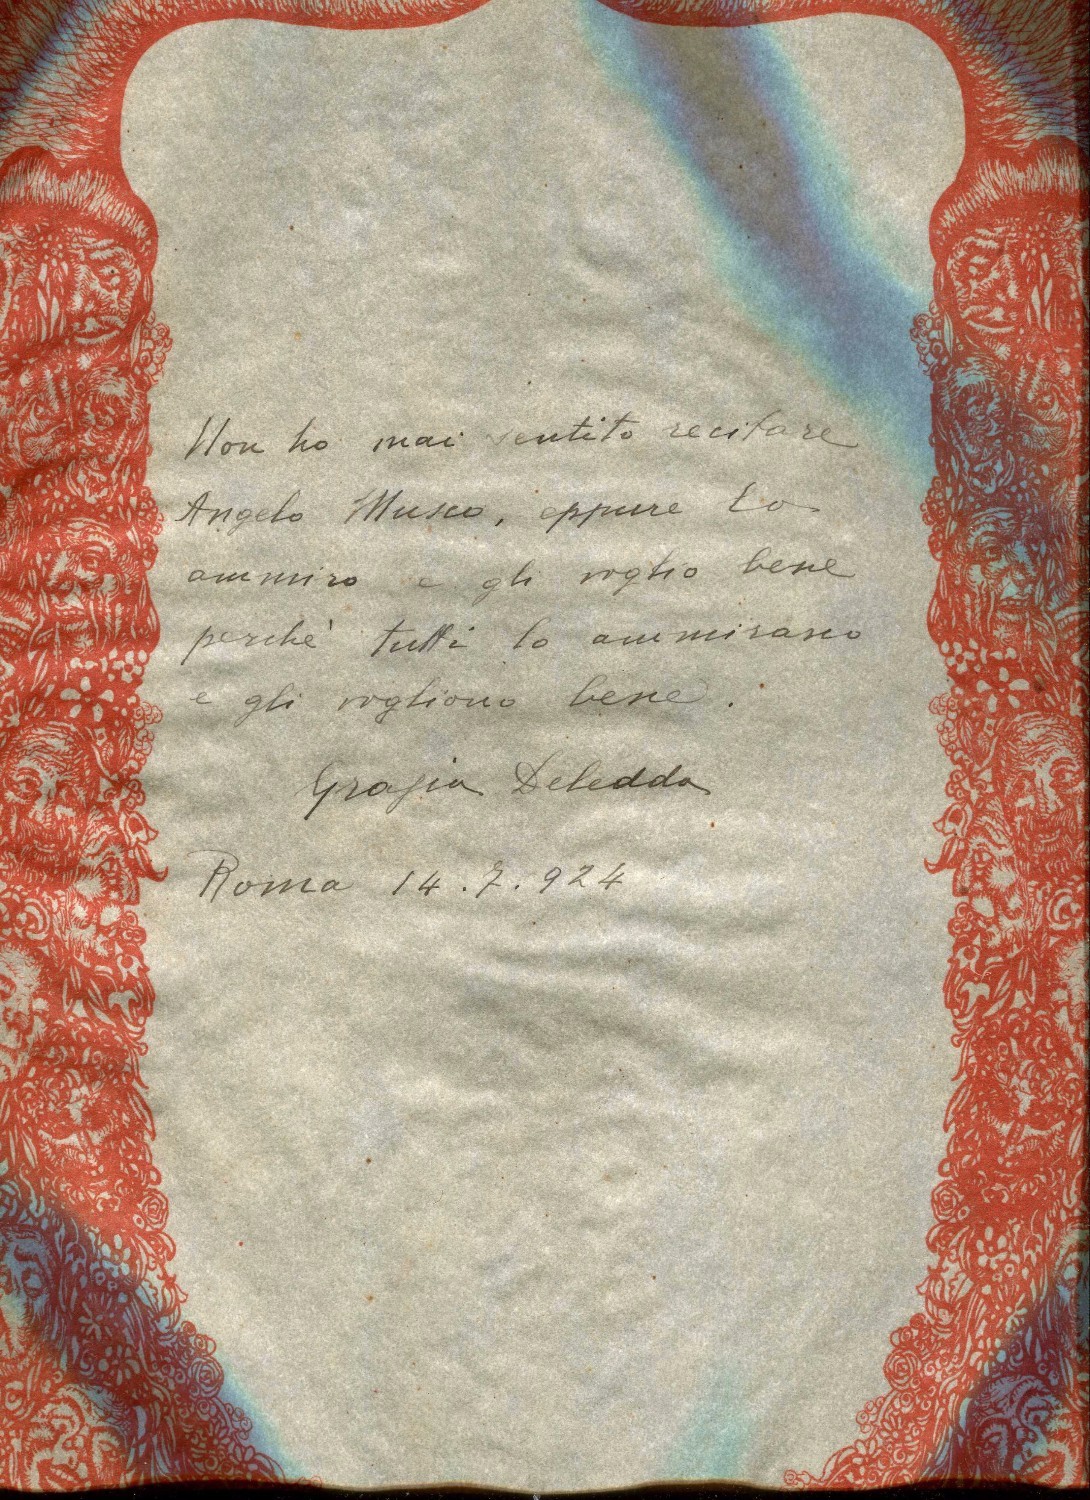 Non ho mai sentito recitare
Angelo Musco, eppure lo
ammiro e gli voglio bene
perchè tutti lo ammirano
e gli vogliono bene.
Grazia Deledda
Roma 14.7.924